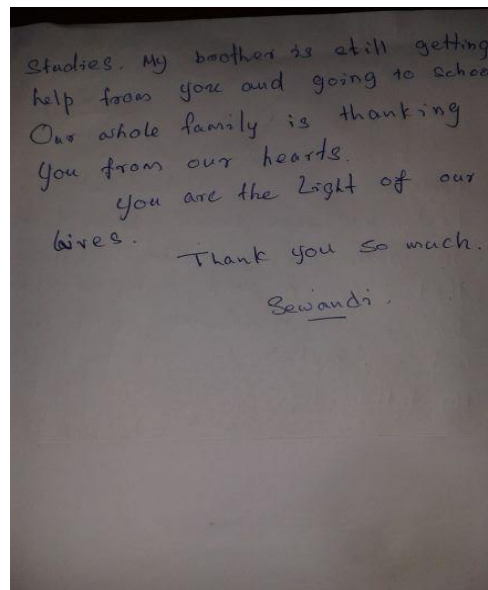 studies. My boother is still getting
help from you and going to schoo
Our whole family is thanking
you from our hearts.
you are the Light of our
lives.
Thank you so much.
Sewandi.